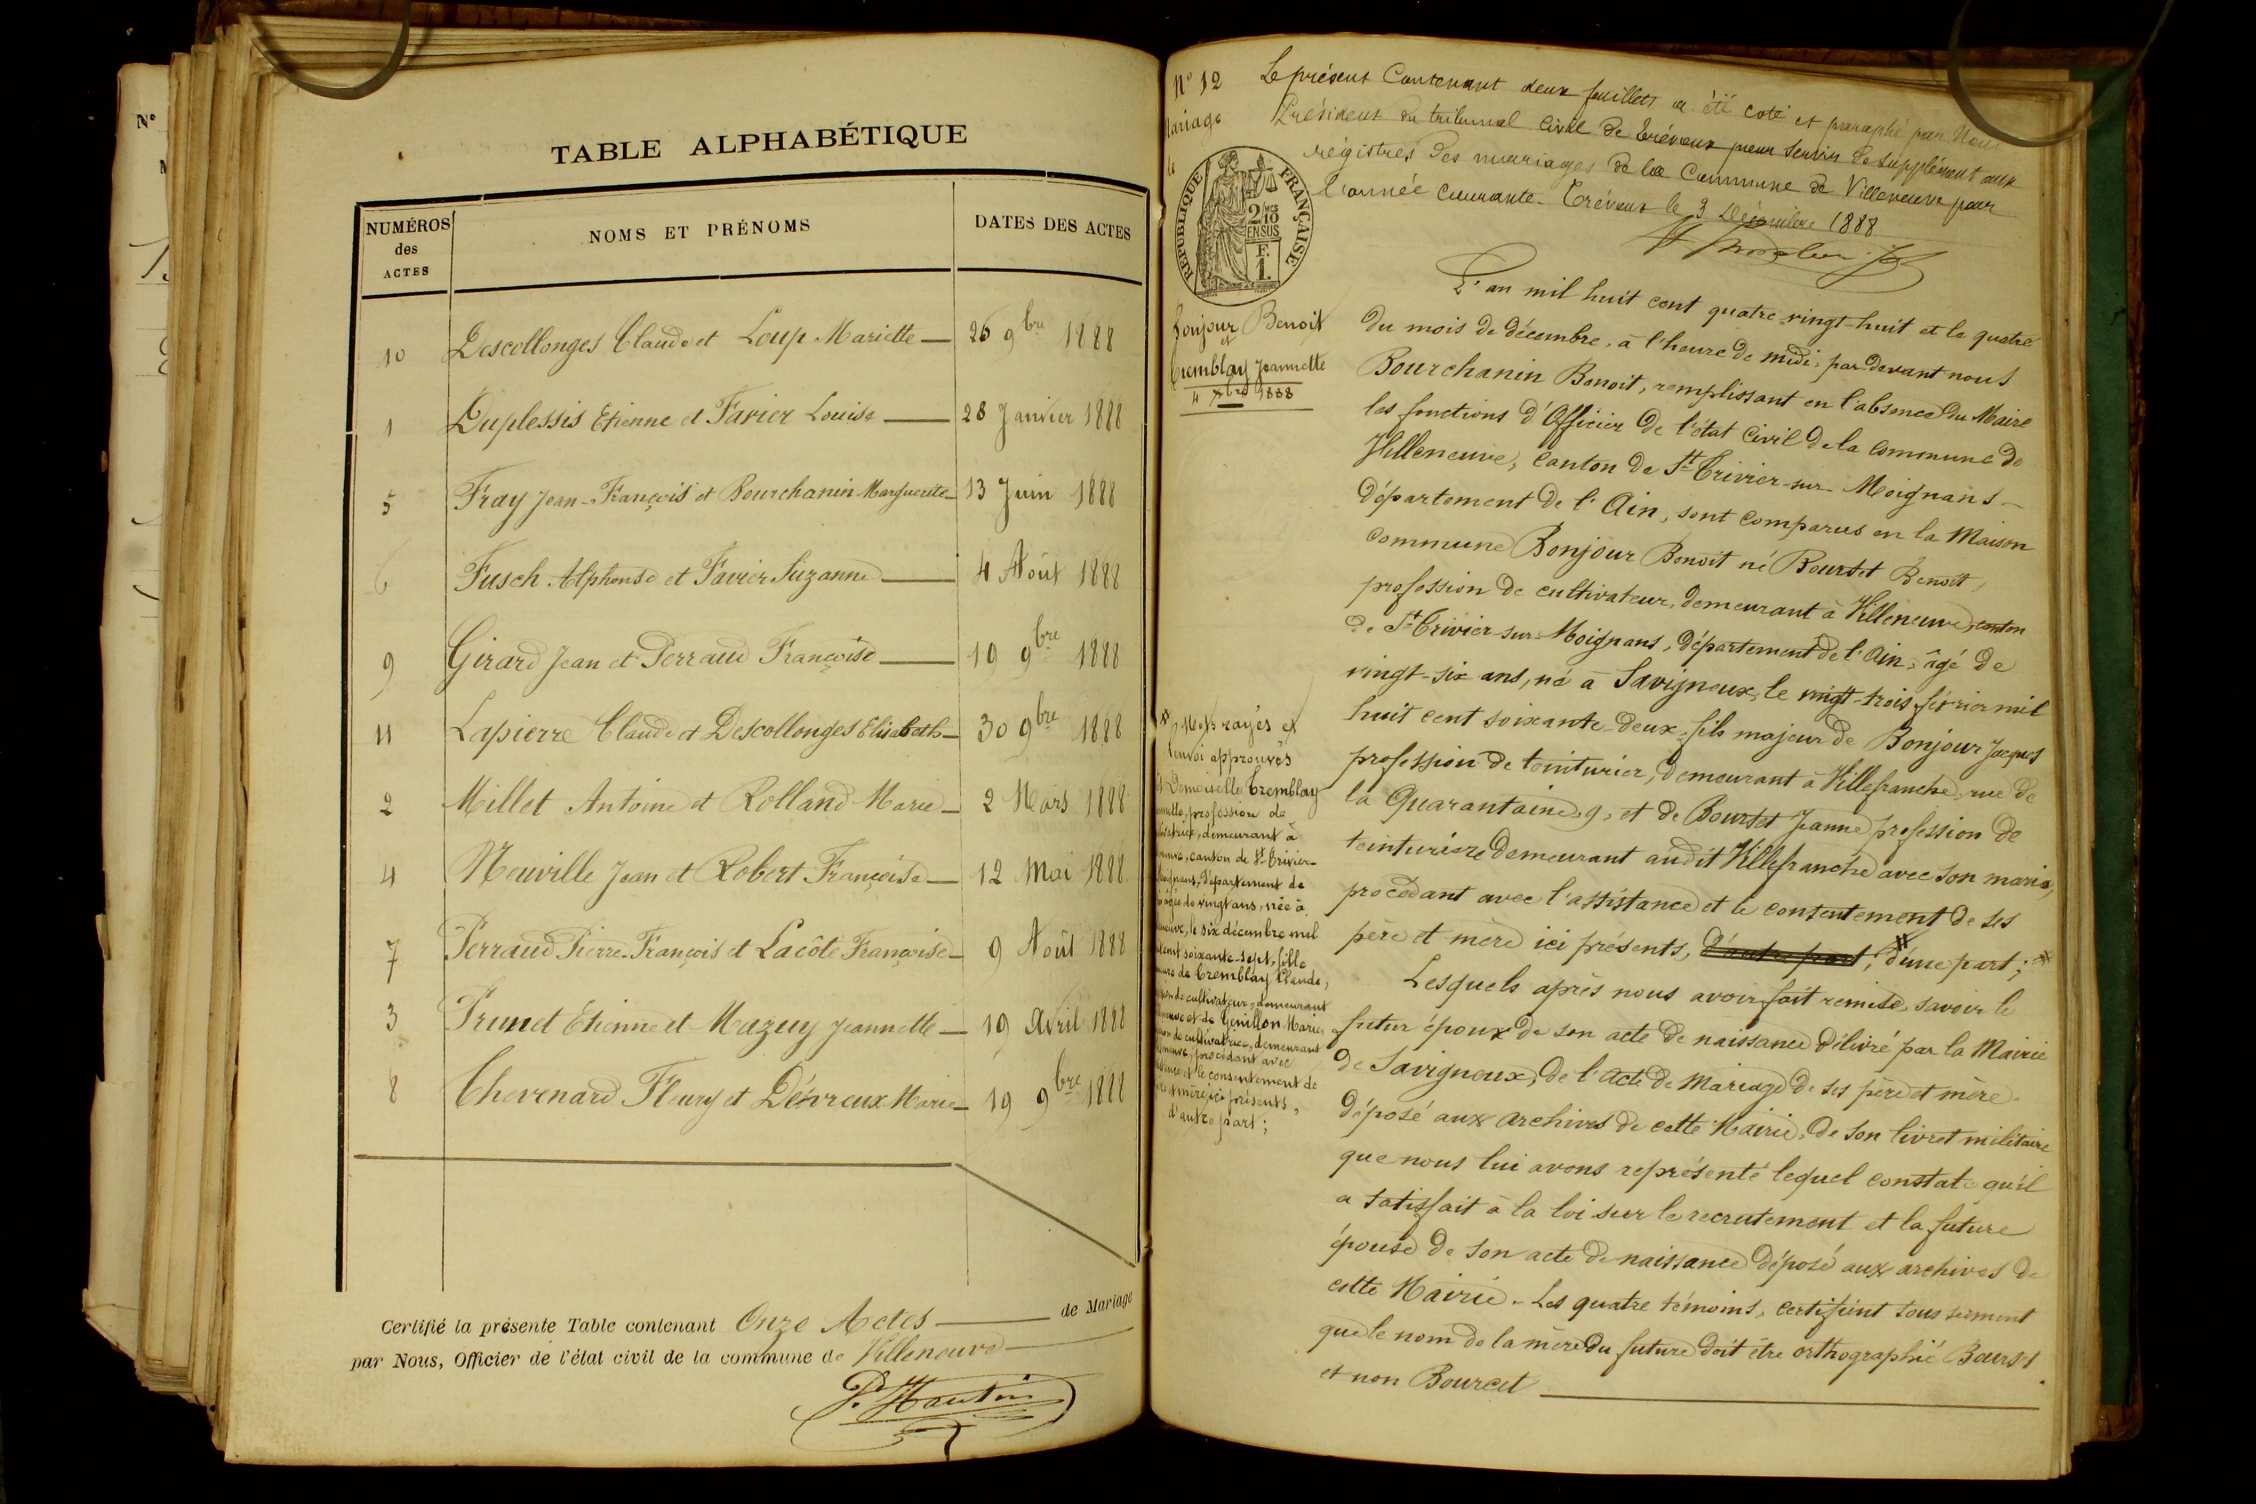 N°
TABLE ALPHABÉTIQUE
NUMÉROS des ACTES
NOMS ET PRÉNOMS
DATES DES ACTES
10 Descollonges Claude et Loup Mariette — 26 9bre 1888
1 Duplessis Etienne et Favier Louise — 28 Janvier 1888
5 Fray Jean-François et Bourchanin Marguerite — 13 Juin 1888
6 Fusch Alphonse et Favier Suzanne — 4 Août 1888
9 Girard Jean et Perraud Françoise — 19 9bre 1888
11 Lapierre Claude et Descollonges Elisabeth — 30 9bre 1888
2 Millet Antoine et Rolland Marie — 2 Mars 1888
4 Neuville Jean et Robert Françoise — 12 Mai 1888
7 Perraud Pierre-François et Lacôte Françoise — 9 Août 1888
3 Prunet Etienne et Mazuy Jeannette — 19 Avril 1888
8 Chevenard Fleury et Dévreux Marie — 19 9bre 1888
Certifié la présente Table contenant Onze Actes — de Mariage
par Nous, Officier de l'état civil de la commune de Villeneuve —
N° 12
Mariage
RÉPUBLIQUE FRANÇAISE
2/10
EN SUS
F.
1.
Bonjour Benoit
et
Tremblay Jeannette
4 Xbre 1888
Le présent Contenant deux feuillets a été coté et paraphé par Nous
Président du tribunal Civil de Trévoux pour servir de supplément aux
régistres des mariages de la Commune de Villeneuve pour
l'année courante. Trévoux le 3 Décembre 1888
L'an mil huit cent quatre-vingt-huit et le quatre
du mois de décembre, à l'heure de midi, par devant nous
Bourchanin Benoit, remplissant en l'absence du Maire
les fonctions d'Officier de l'état Civil de la commune de
Villeneuve, canton de St Trivier-sur-Moignans —
département de l'Ain, sont comparus en la Maison
commune Bonjour Benoit né Bourset Benoit,
profession de cultivateur, demeurant à Villeneuve, canton
de St Trivier-sur-Moignans, département de l'Ain, âgé de
vingt-six ans, né à Savigneux, le vingt-trois février mil
huit cent soixante-deux, fils majeur de Bonjour Jacques
profession de teinturier, demeurant à Villefranche, rue de
la Quarantaine, 9, et de Bourset Jeanne profession de
teinturière demeurant audit Villefranche avec son mari,
procédant avec l'assistance et le consentement de ses
père et mère ici présents, d'autre part, d'une part;
Lesquels après nous avoir fait remise, savoir le
futur époux de son acte de naissance délivré par la Mairie
de Savigneux, de l'acte de Mariage de ses père et mère
déposé aux archives de cette Mairie, de son livret militaire
que nous lui avons représenté lequel constate qu'il
a satisfait à la loi sur le recrutement et la future
épouse de son acte de naissance déposé aux archives de
cette Mairie. Les quatre témoins, certifient sous serment
que le nom de la mère du future doit être orthographié Bourset
et non Bourcet
Mots rayés et
renvoi approuvés
et Demoiselle Tremblay
profession de
demeurant à
canton de St Trivier-
département de
âgée de vingt ans, née à
le six décembre mil
soixante-sept, fille
de Tremblay Claude,
cultivateur, demeurant
et de Génillon Marie
de cultivatrice, demeurant
procédant avec
et le consentement de
mère ici présents,
d'autre part;